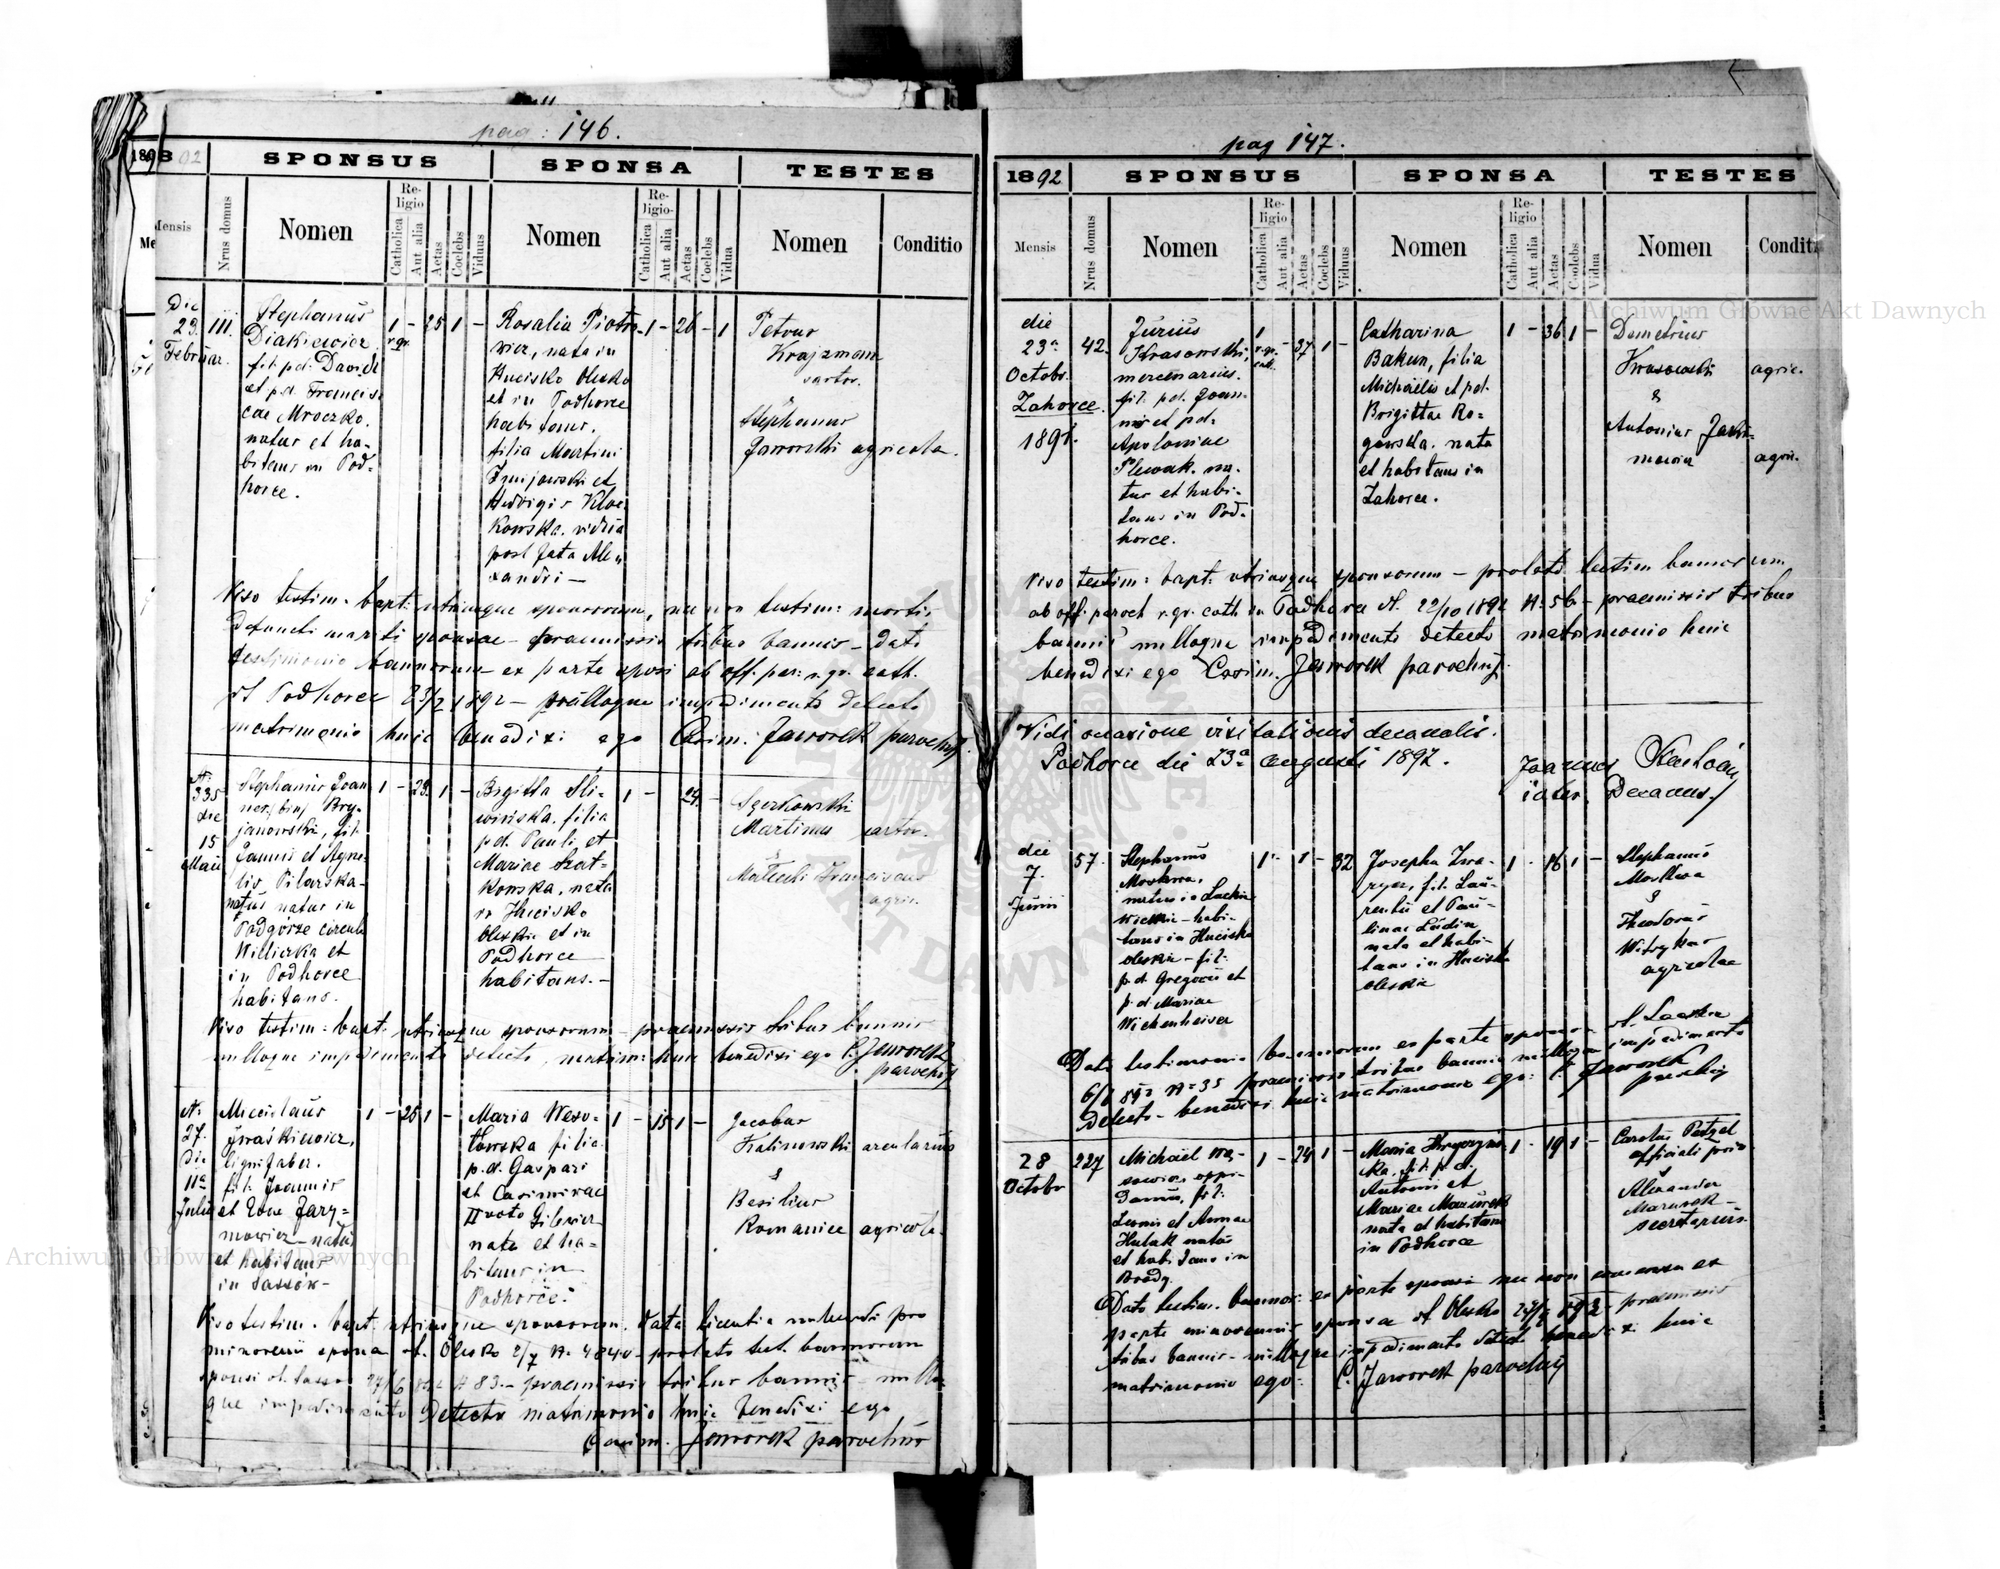 pag: 146.
1892
SPONSUS
SPONSA
TESTES
Mensis
Nrus domus
Nomen
Religio
Catholica
Aut alia
Aetas
Coelebs
Viduus
Nomen
Religio
Catholica
Aut alia
Aetas
Coelebs
Vidua
Nomen
Conditio
Die
29.
Februar.
III.
Stephanus
Diakiewicz.
fil. p.d. Davidi
et p.d. Francis-
cae Mroczko.
natus et ha-
bitans in Pod-
horce.
1 r.gr. - 25 1 -
Rosalia Piotro-
wicz, nata in
Hucisko Olesko
et in Podhorce
habitans.
filia Martini
et
Hedvigis
vidua
post fata Ale-
xandri —
1 - 26 - 1
Petrus
Krajzmann
sartor.
&
Stephanus
Jaworski agricola.
Viso testim. bapt. utriusque sponsorum, nec non testim: mortis
defuncti mariti sponsae - praemissis tribus bannis - dato
testimonio bannorum ex parte sponsi ab off. par: r.gr. cath.
Podhorce 23/2 1892 - nulloque impedimento detecto
matrimonio huic benedixi ego Casim. Jaworek parochus.
N:
335
die
15
Maii
Stephanus Joan
nes (bin) Bry-
janowski, fil.
Joannis et Agne-
tis Pilarska-
natus in
Podgórze circulo
Wieliczka et
in Podhorce
habitans.
1 - 29. 1 -
Brgitta Sli-
wińska. filia
p.d. Pauli et
Mariae Szat-
kowska, nata
in Hucisko
Oleskie et in
Podhorce
habitans. -
1 - 24. -
Martinus sartor.
&
Małecki Franciscus
agric.
Viso testim: bapt. utriusque sponsorum - praemissis tribus bannis
nulloque impedimento detecto, matrim: huic benedixi ego C. Jaworek
parochus
N:
27.
Die
11a
Julii
Miecislaus
Iwaśkiewicz,
lignifaber.
fil. Joannis
et Evae Jary-
mowicz - natus
et habitans
in Sassów -
1 - 25 1 -
Maria Weso-
łowska filia
p.d. Gaspari
et Casimirae
II voto Gilewicz
nata et ha-
bitans in
Podhorce.
1 - 15 1 -
Jacobus
Kalinowski arcularius
&
Basilius
Romaniec agricola.
Viso testim. bapt. utriusque sponsorum. data licentia nubendi pro
minorenni sponsa Olesko 2/7 N. 4840 - prolato test. bannorum
sponsi Sassów 27/6 N 83. - praemissis tribus bannis - nullo-
que impedimento detecto matrimonio huic benedixi ego
Casim. Jaworek parochus
pag 147.
1892
SPONSUS
SPONSA
TESTES
Mensis
Nrus domus
Nomen
Religio
Catholica
Aut alia
Aetas
Coelebs
Viduus
Nomen
Religio
Catholica
Aut alia
Aetas
Coelebs
Vidua
Nomen
Condit
die
23a
Octobr.
Zahorce.
42.
Jurius
Krasowski,
mercenarius.
fil. p.d. Joan-
nis et p.d.
Apoloniae
Plewak. na-
tus et habi-
tans in Pod-
horce.
1 r.gr. cat. - 37 1 -
Catharina
Bakun, filia
Michaelis et p.d.
Brigittae Ro-
gowska. nata
et habitans in
Zahorce.
1 - 36 1 -
Demetrius
Krasowski agric.
&
Antonius Jaki-
mowicz agric.
Viso testim: bapt: utriusque sponsorum - prolato testim bannorum
ab off. paroch r.gr. cath in Podhorce d. 22/10 1892 N. 56 - praemissis tribus
bannis nulloque impedimento detecto matrimonio huic
benedixi ego Casim. Jaworek parochus.
Vidi occasione visitationis decanalis.
Podhorce die 23a augusti 1892.
Joannes
Decanus.
die
7.
Junii
57.
Stephanus
Moskwa,
natus in Lackie
Wielkie - habi-
tans in Hucisko
oleskie - fil:
p.d. Gregorii et
p.d. Mariae
Wichenheiser
1 - 1 - 32
Josepha Zwa-
rycz, fil. Lau-
rentii et Pau-
linae Ludin
nata et habi-
tans in Hucisko
oleskie
1 - 16 1 -
Stephanus
Moskwa
&
Theodorus
agricolae
Dato testimonio bannorum ex parte sponsi d. Lackie
6/6 892 N: 35 praemissis tribus bannis nulloque impedimento
detecto - benedixi huic matrimonio ego: C. Jaworek
parochus
28
Octobr
227
Michael Wą-
sowicz oppi-
danus, fil.
Leonis et Annae
Hulak natus
et habitans in
Brody.
1 - 24 1 -
Maria
fil. p.d.
Antonii et
Mariae Mazurek
nata et habitans
in Podhorce
1 - 19 1 -
Carolus Petzel
officiali priv.
&
Alexander
Marusek -
secretarius.
Dato testim. bannor: ex parte sponsi nec non consensu ex
parte minorennis sponsae d Olesko praemissis
tribus bannis - nulloque impedimento detect benedixi huic
matrimonio ego: C. Jaworek parochus
Archiwum Główne Akt Dawnych
Archiwum Główne Akt Dawnych